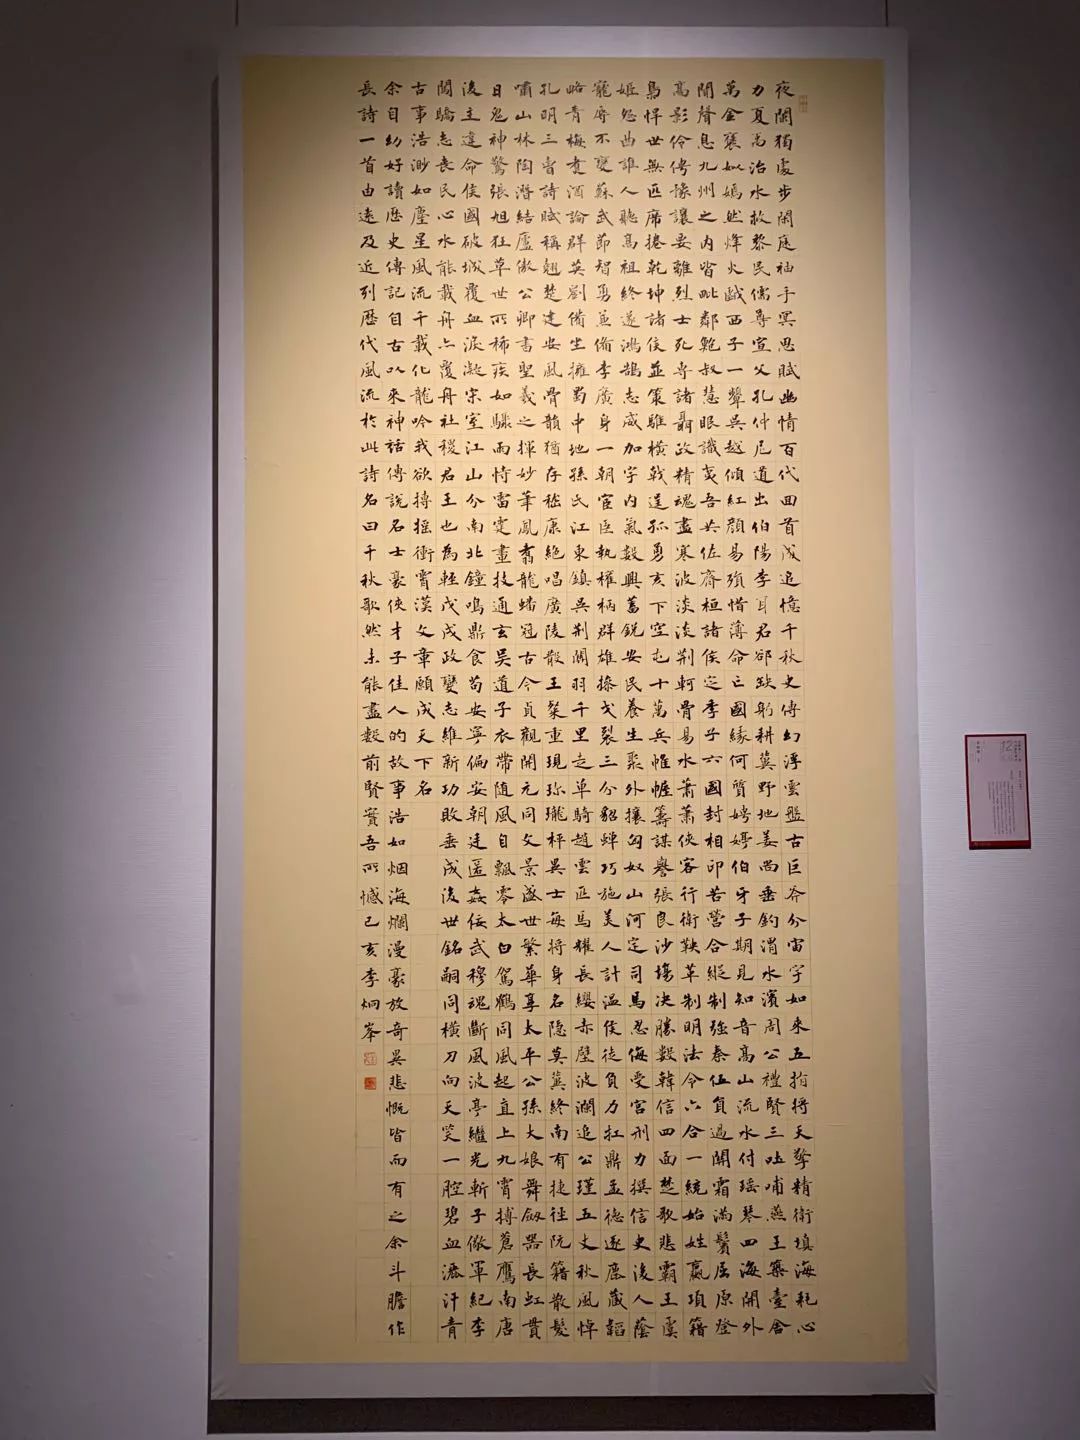 夜闌獨處步閑庭袖手冥思賦幽情百代回首成追憶千秋史傳幻浮雲盤古巨斧分宙宇如來五指將天擎精衛填海耗心
力夏禹治水救黎民儒尊宣父孔仲尼道出伯陽李耳君郤缺躬耕冀野地姜尚垂釣渭水濱周公禮賢三吐哺燕王築臺舍
萬金褒姒嫣然烽火戲西子一顰吳越傾紅顏易殞惜薄命亡國緣何質娉婷伯牙子期見知音高山流水付瑤琴四海開外
開聲息九州之內皆毗鄰鮑叔慧眼識夷吾共佐齊桓諸侯定季子六國封相印苦營合縱制強秦伍員過關霜滿鬢屈原
高影伶俜豫讓要離烈士死專諸聶政精魂盡寒波淡淡荊軻骨易水蕭蕭俠客行衛鞅革制明法令六合一統始姓嬴項籍
鳥悍世無匹席捲乾坤諸侯並策騅橫戟逞孤勇亥下空屯十萬兵帷幄籌謀譽張良沙場決勝數韓信四面楚歌悲霸王虞
姬怨曲誰人聽高祖終遂鴻鵠志威加宇內氣數興蓄銳安民養生聚外攘匈奴山河定司馬忍侮受宮刑力撰信史後人蔭
寵辱不變蘇武節智勇並備李廣身一朝宦臣執權柄群雄操戈裂三分貂蟬巧施美人計溫侯徒負力扛鼎孟德逐鹿藏韜
略青梅煮酒論群英劉備坐擁蜀中地孫氏江東鎮吳荊關羽千里走單騎趙雲匹馬耀長纓赤壁波瀾追公瑾五丈秋風悼
孔明三曹詩賦稱翹楚建安風骨韻猶存嵇康絕唱廣陵散王粲重現珍瓏枰異士每將身名隱莫冀終南有捷徑阮籍散髮
嘯山林陶潛結廬傲公卿書聖羲之揮妙筆鳳翥龍蟠冠古今貞觀開元同文景盛世繁華享太平公孫大娘舞劍器長虹貫
日鬼神驚張旭狂草世所稀疾如驟雨恃雷霆畫技通玄吳道子衣帶隨風自飄零太白駕鶴同風起直上九霄搏蒼鷹南唐
後主違命侯國破城覆血淚凝宋室江山分南北鐘鳴鼎食苟安寧偏安朝廷匿姦佞武穆魂斷風波亭繼光斬子儆軍紀李
闖驕志喪民心水能載舟亦覆舟社稷君王也為輕戊戌政變志維新功敗垂成後世銘嗣同橫刀向天笑一腔碧血灑汗青
古事浩渺如塵星風流千載化龍吟我欲搏搖衝霄漢文章願成天下名
余自幼好讀歷史傳記自古以來神話傳說名士豪俠才子佳人的故事浩如烟海爛漫豪放奇異悲慨皆而有之余斗膽作
長詩一首由遠及近列歷代風流於此詩名曰千秋歌然未能盡數前賢實吾所憾己亥李炯峯